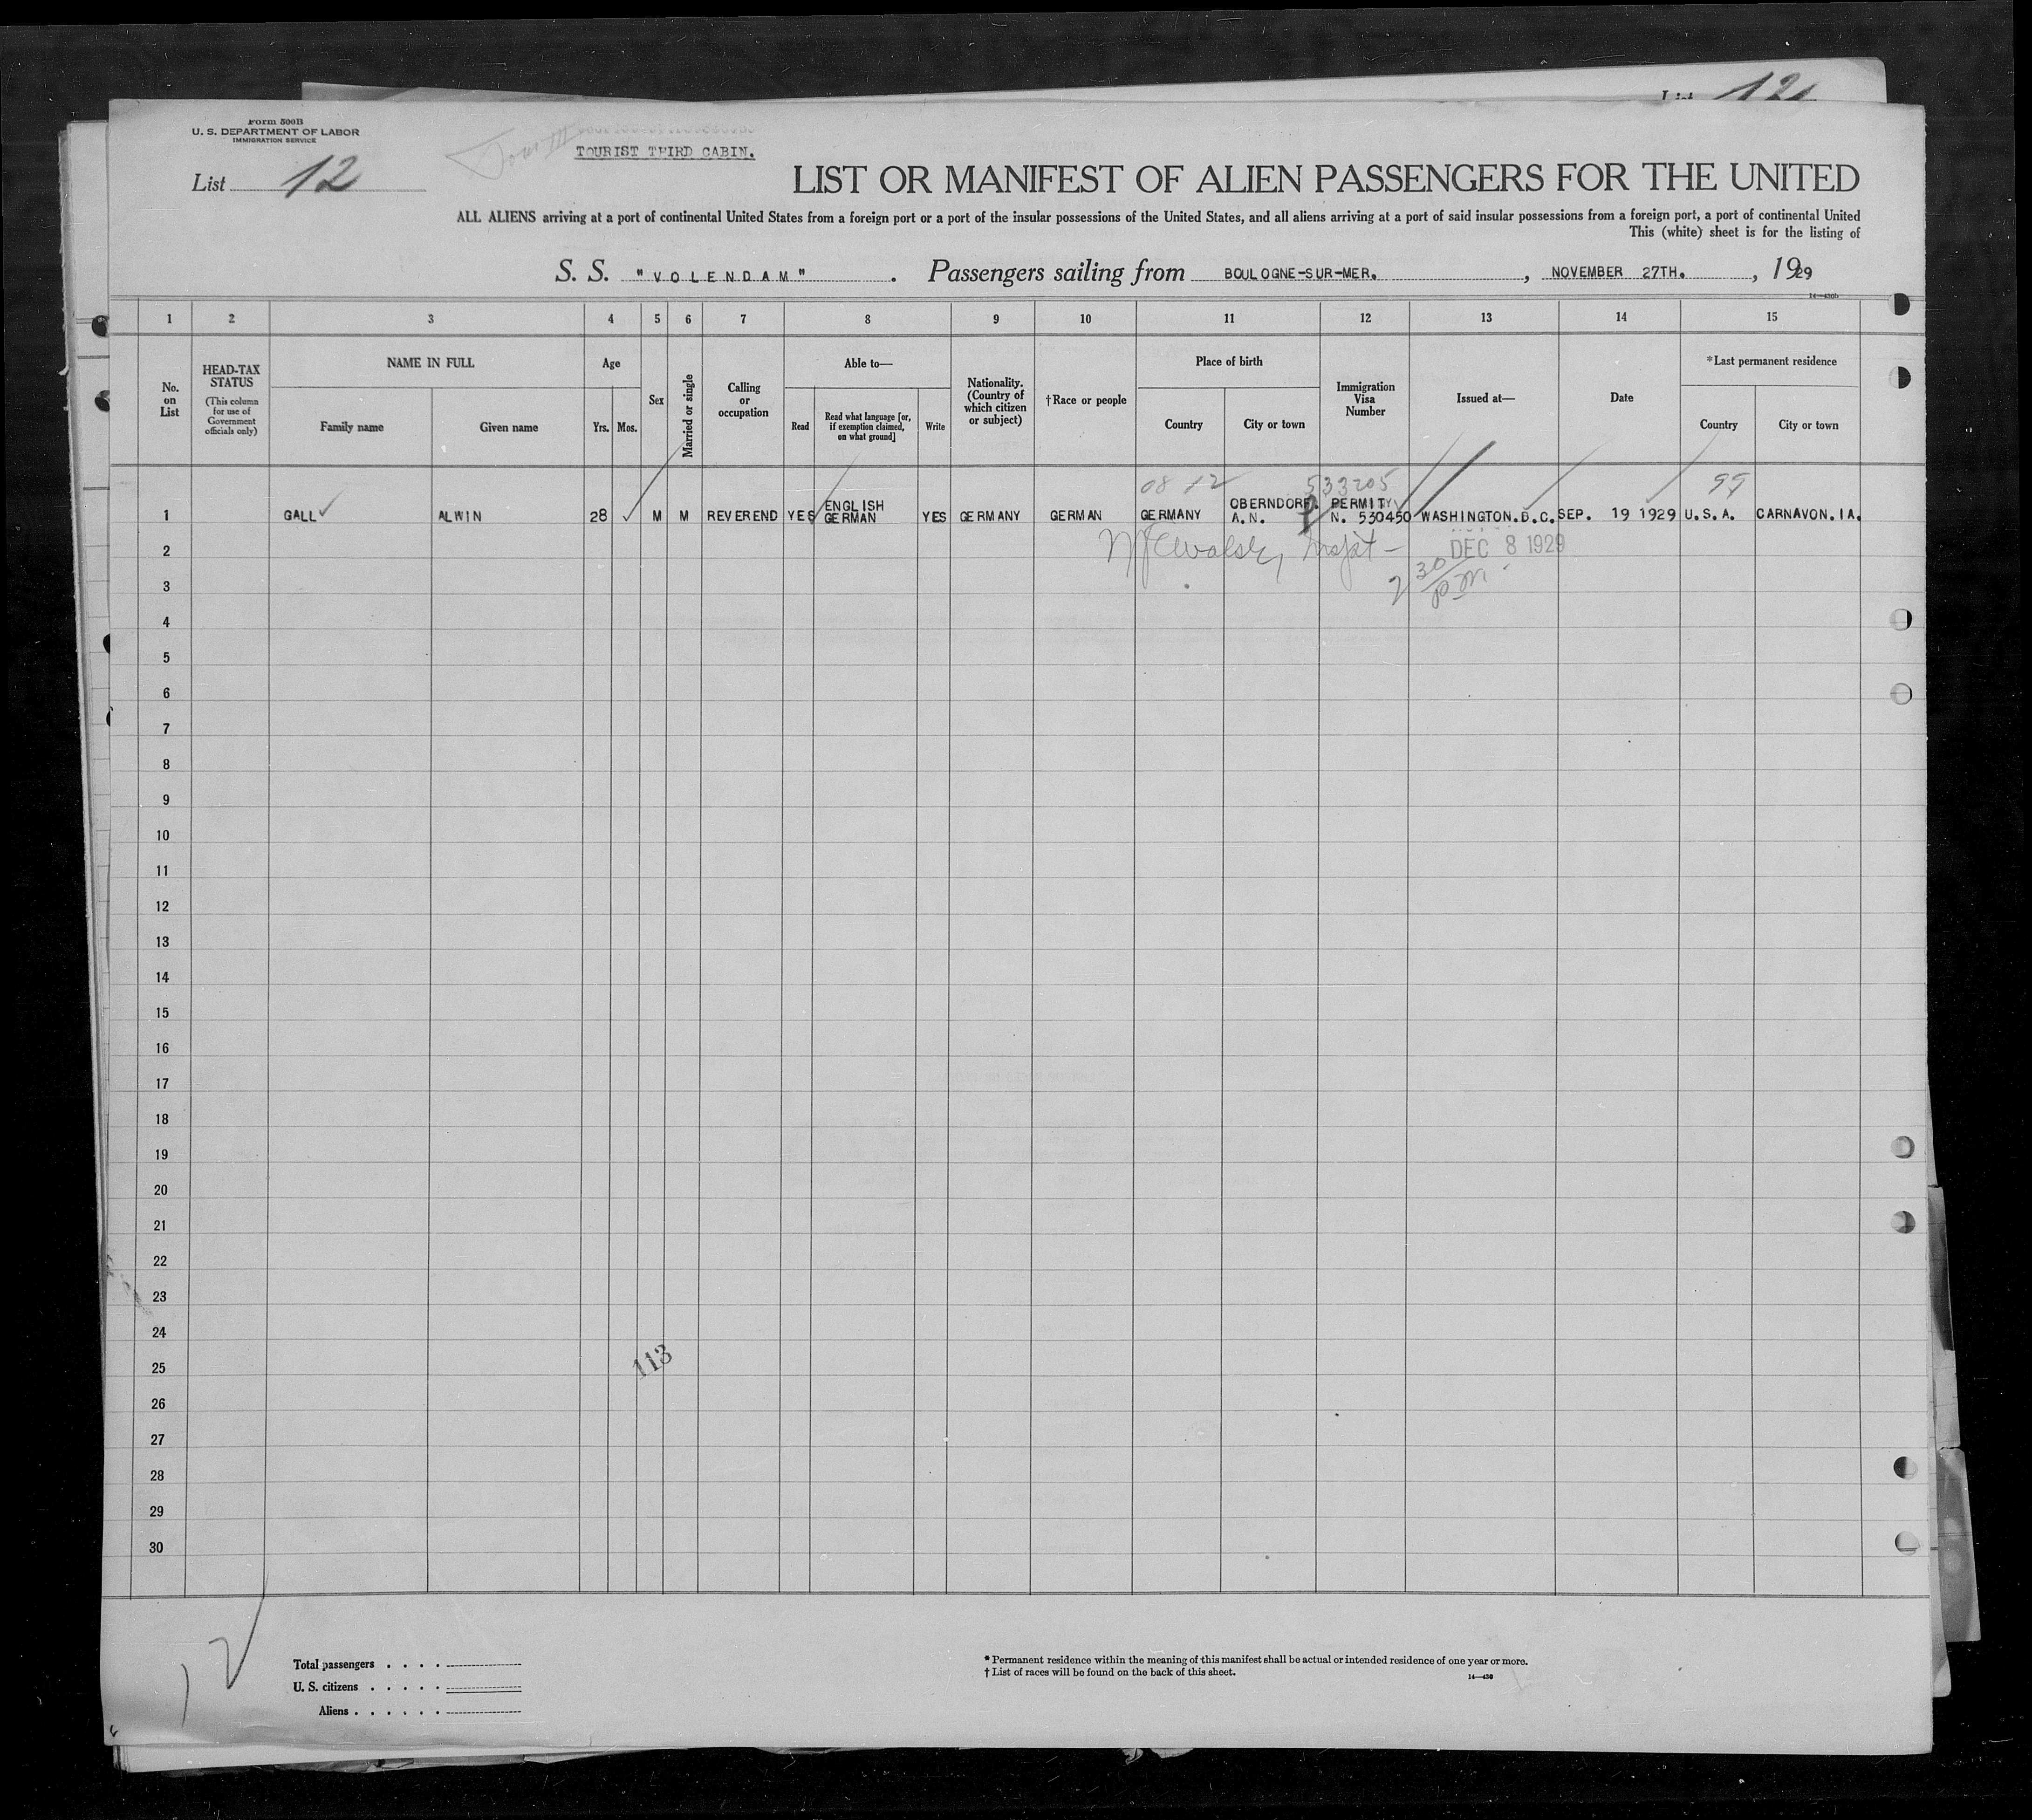 List 12
Form 500B
U. S. DEPARTMENT OF LABOR
IMMIGRATION SERVICE
TOURIST THIRD CABIN.
List 12
LIST OR MANIFEST OF ALIEN PASSENGERS FOR THE UNITED
ALL ALIENS arriving at a port of continental United States from a foreign port or a port of the insular possessions of the United States, and all aliens arriving at a port of said insular possessions from a foreign port, a port of continental United
This (white) sheet is for the listing of
S. S. "VOLENDAM" . Passengers sailing from BOULOGNE-SUR-MER. , NOVEMBER 27TH. , 1929
14—430b
1 2 3 4 5 6 7 8 9 10 11 12 13 14 15
No. on List
HEAD-TAX STATUS
(This column for use of Government officials only)
NAME IN FULL
Family name
Given name
Age
Yrs. Mos.
Sex
Married or single
Calling or occupation
Able to—
Read
Read what language [or, if exemption claimed, on what ground]
Write
Nationality. (Country of which citizen or subject)
†Race or people
Place of birth
Country
City or town
Immigration Visa Number
Issued at—
Date
*Last permanent residence
Country
City or town
08 12 533205 99
1 GALL ALWIN 28 M M REVEREND YES ENGLISH GERMAN YES GERMANY GERMAN GERMANY OBERNDORF. A.N. PERMIT N. 530450 WASHINGTON.D.C. SEP. 19 1929 U.S.A. CARNAVON.IA.
2 DEC 8 1929
3 2 30 pm
4
5
6
7
8
9
10
11
12
13
14
15
16
17
18
19
20
21
22
23
24
25 113
26
27
28
29
30
12
Total passengers
U. S. citizens
Aliens
* Permanent residence within the meaning of this manifest shall be actual or intended residence of one year or more.
† List of races will be found on the back of this sheet.
14—430